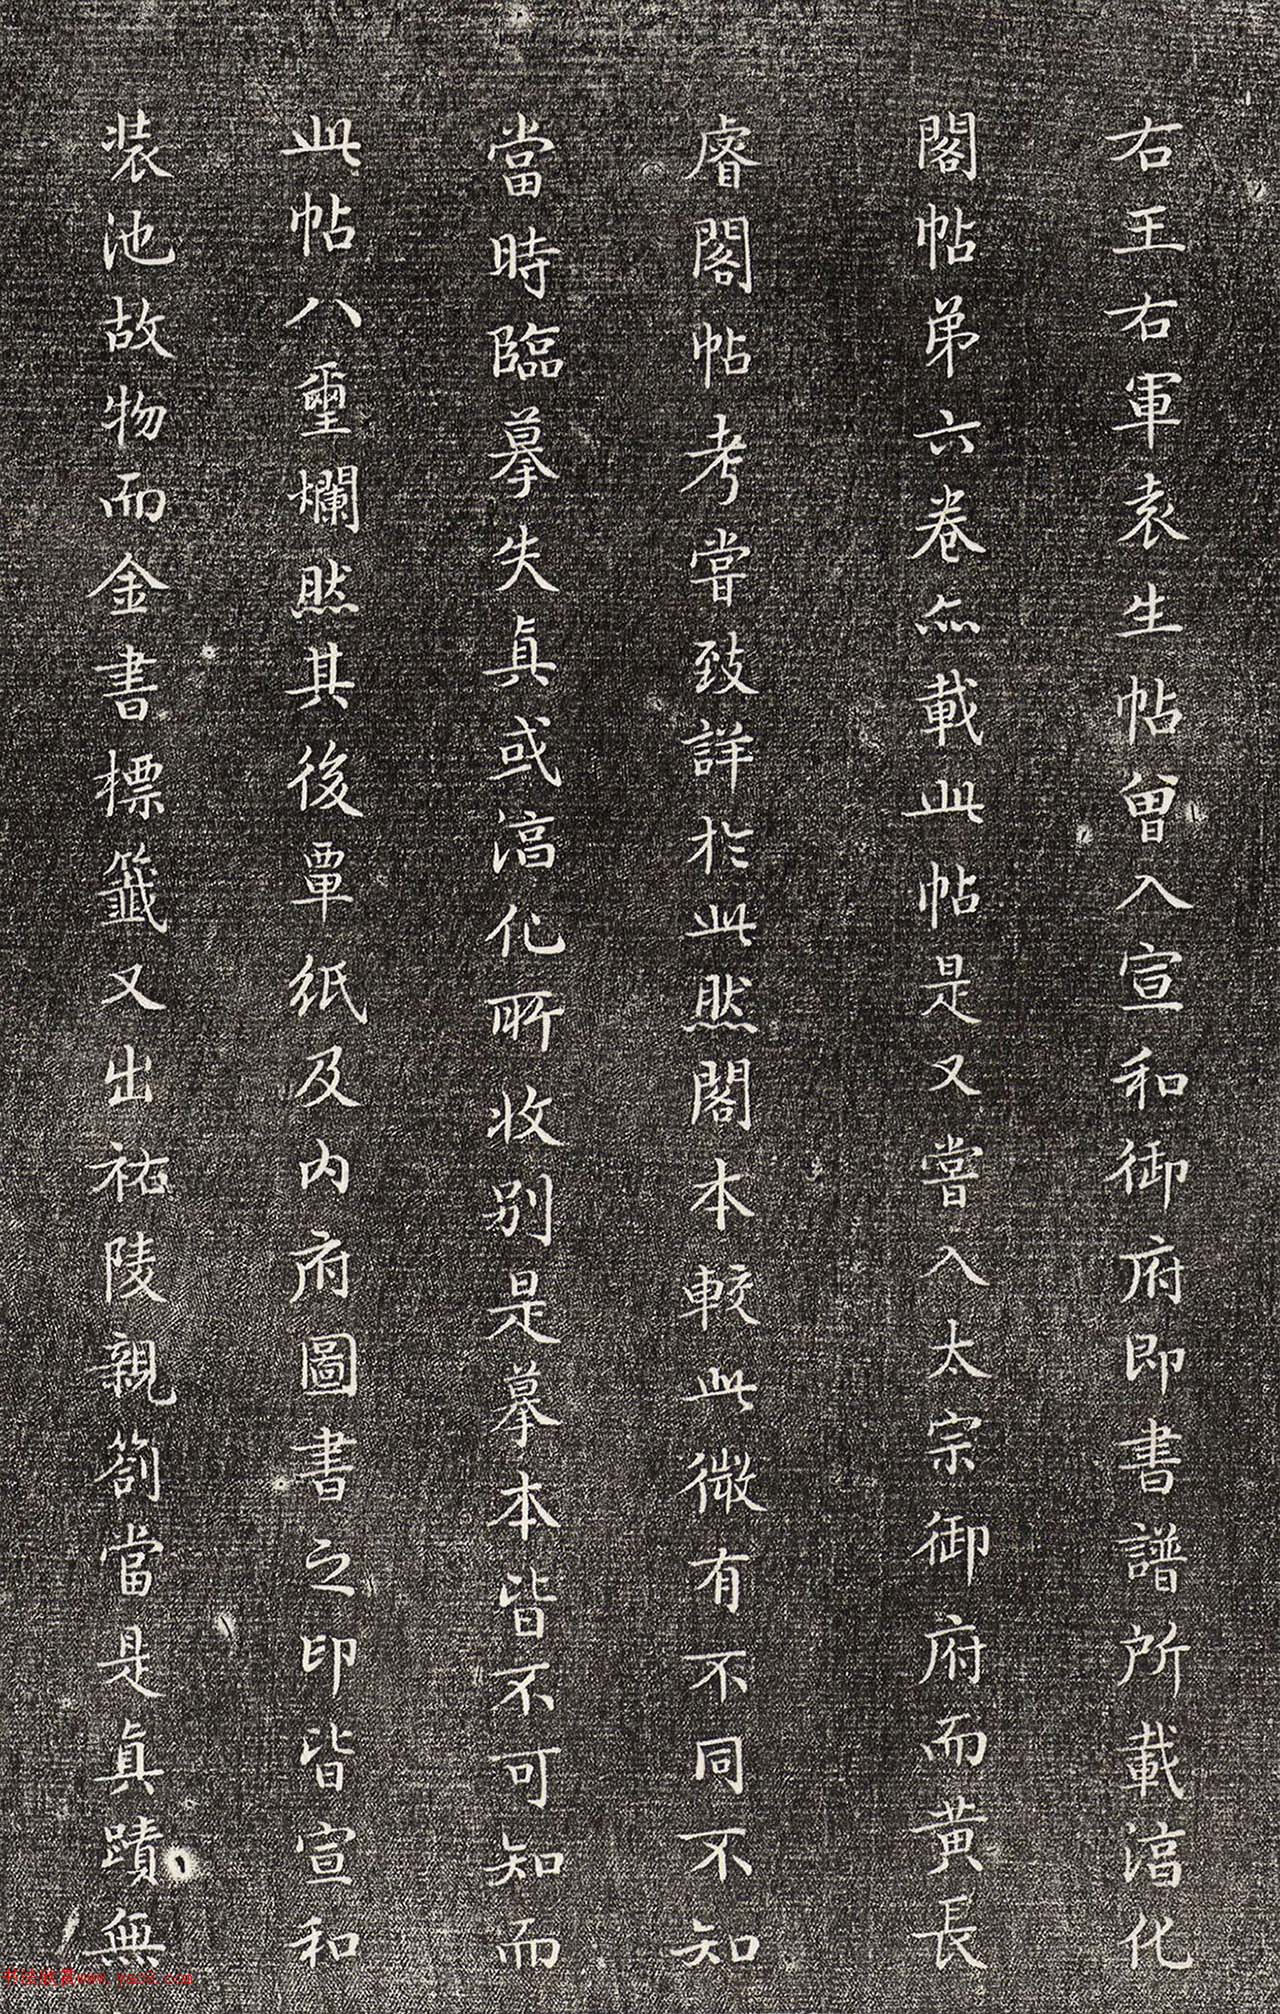 右王右軍袁生帖曾入宣和御府即書譜所載淳化
閣帖弟六卷亦載此帖是又嘗入太宗御府而黄長
睿閣帖考嘗致詳於此然閣本較此微有不同不知
當時臨摹失真或淳化所收别是摹本皆不可知而
此帖八璽爛然其後覃紙及内府圖書之印皆宣和
装池故物而金書標籤又出祐陵親劄當是真蹟無